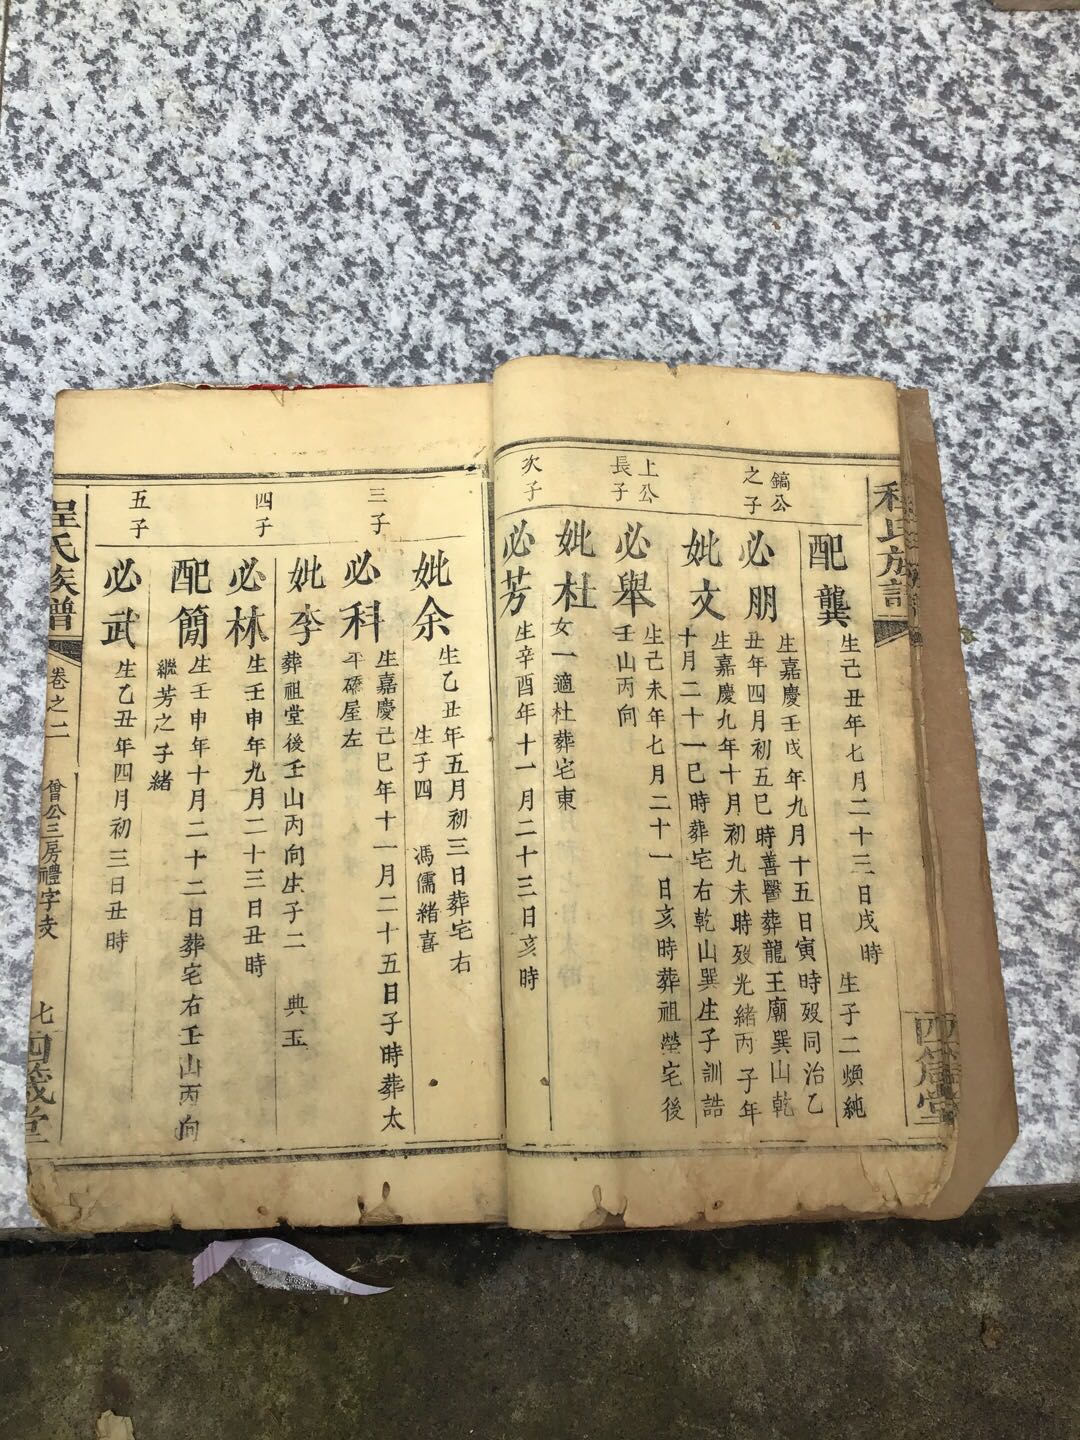 程氏族譜
四箴堂
配龔
生己丑年七月二十三日戌時
生子二煥純
鎬公
之子
必朋
生嘉慶壬戌年九月十五日寅時歿同治乙
丑年四月初五巳時善醫葬龍王廟巽山乾
妣文
生嘉慶九年十月初九未時歿光緒丙子年
十月二十一巳時葬宅右乾山巽生子訓誥
上公
長子
必舉
生己未年七月二十一日亥時葬祖塋宅後
壬山丙向
妣杜
女一適杜葬宅東
次子
必芳
生辛酉年十一月二十三日亥時
妣余
生乙丑年五月初三日葬宅右
生子四 馮儒緒喜
三子
必科
生嘉慶己巳年十一月二十五日子時葬太
平礄屋左
妣李
葬祖堂後壬山丙向生子二 典玉
四子
必林
生壬申年九月二十三日丑時
配簡
生壬申年十月二十二日葬宅右壬山丙向
繼芳之子緒
五子
必武
生乙丑年四月初三日丑時
程氏族譜
卷之二
僧公三房禮字支
七
四箴堂